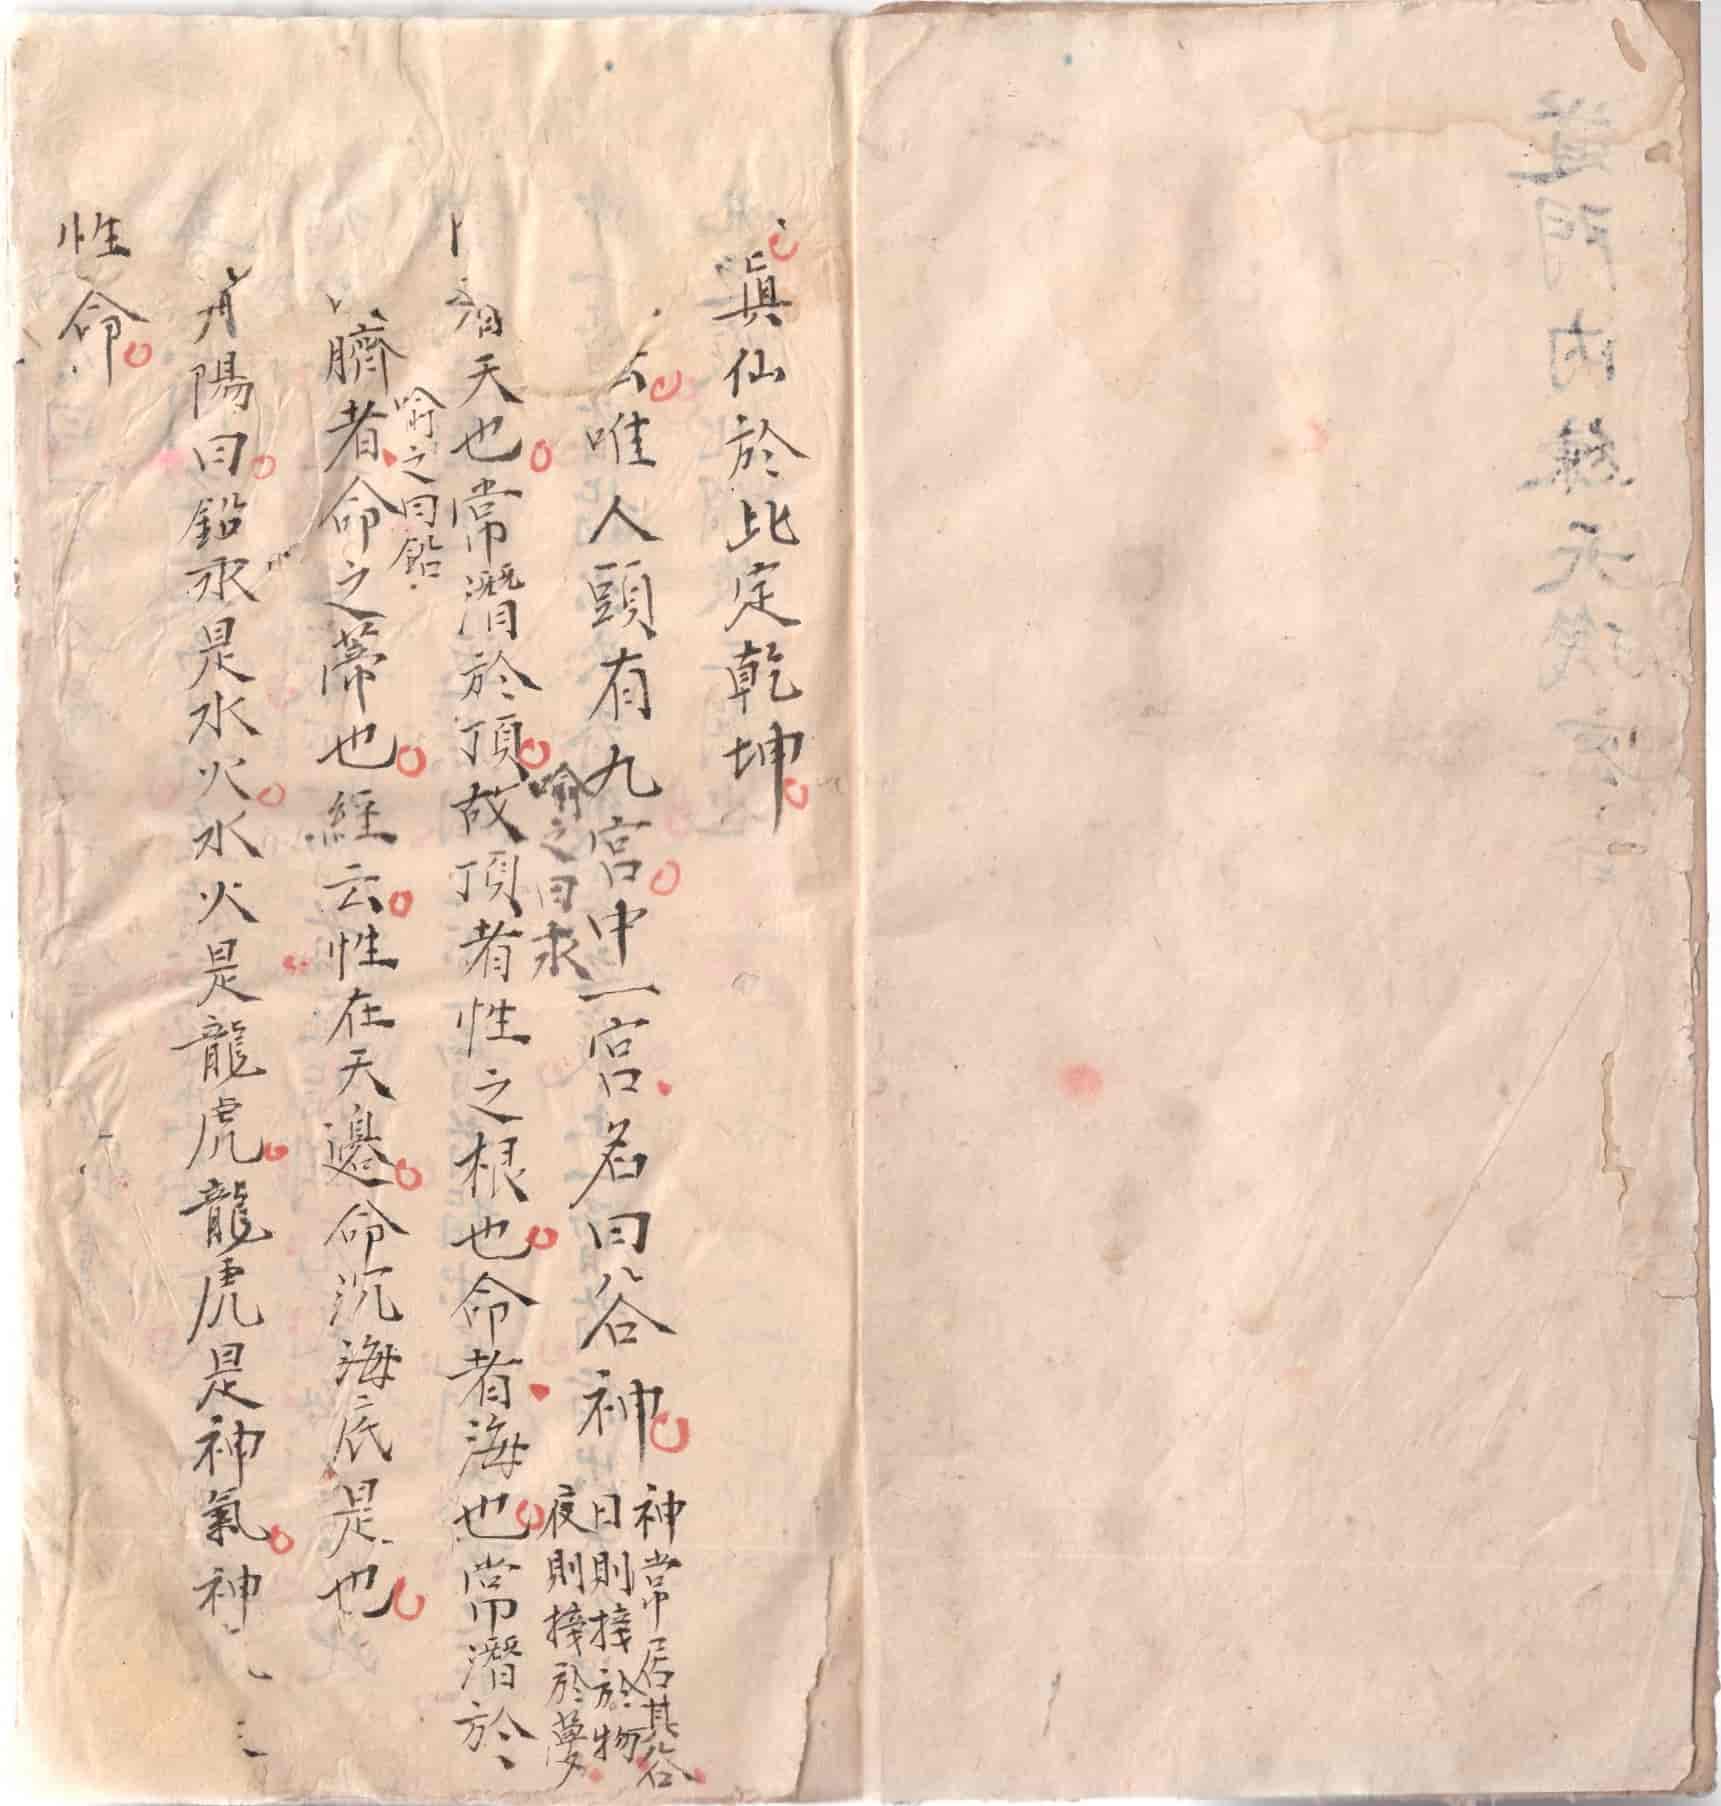 真仙於此定乾坤
云唯人頭有九宮中一宮名曰谷神
神常居其谷
日則接於物
夜則接於夢
天也常潛於頂故頂者性之根也命者海也常潛於
喻之曰汞
臍者命之蒂也經云性在天邊命沉海底是也
喻之曰鉛
丹陽曰鉛汞是水火水火是龍虎龍虎是神氣神
性命